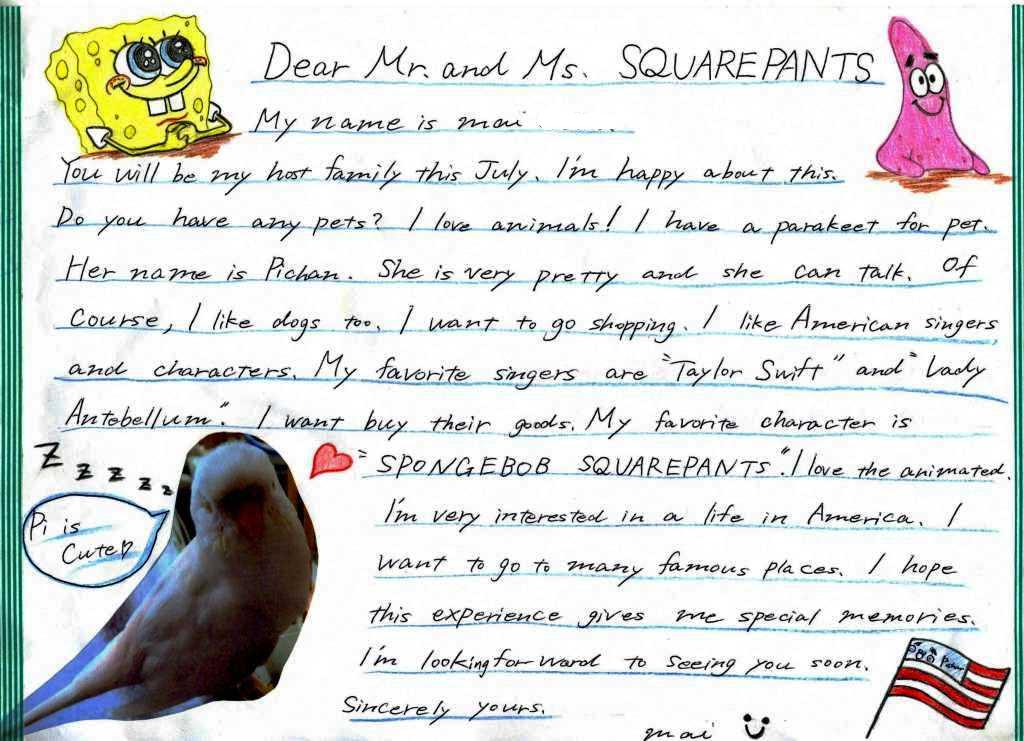 Dear Mr. and Ms. SQUAREPANTS
My name is mai
You will be my host family this July. I'm happy about this.
Do you have any pets? I love animals! I have a parakeet for pet.
Her name is Pichan. She is very pretty and she can talk. Of
course, I like dogs too. I want to go shopping. I like American singers
and characters. My favorite singers are "Taylor Swift" and "Lady
Antebellum". I want buy their goods. My favorite character is
"SPONGEBOB SQUAREPANTS". I love the animated.
I'm very interested in a life in America. I
want to go to many famous places. I hope
this experience gives me special memories.
I'm looking forward to seeing you soon.
Sincerely yours.
mai
Z z z z z
Pi is
Cute♡